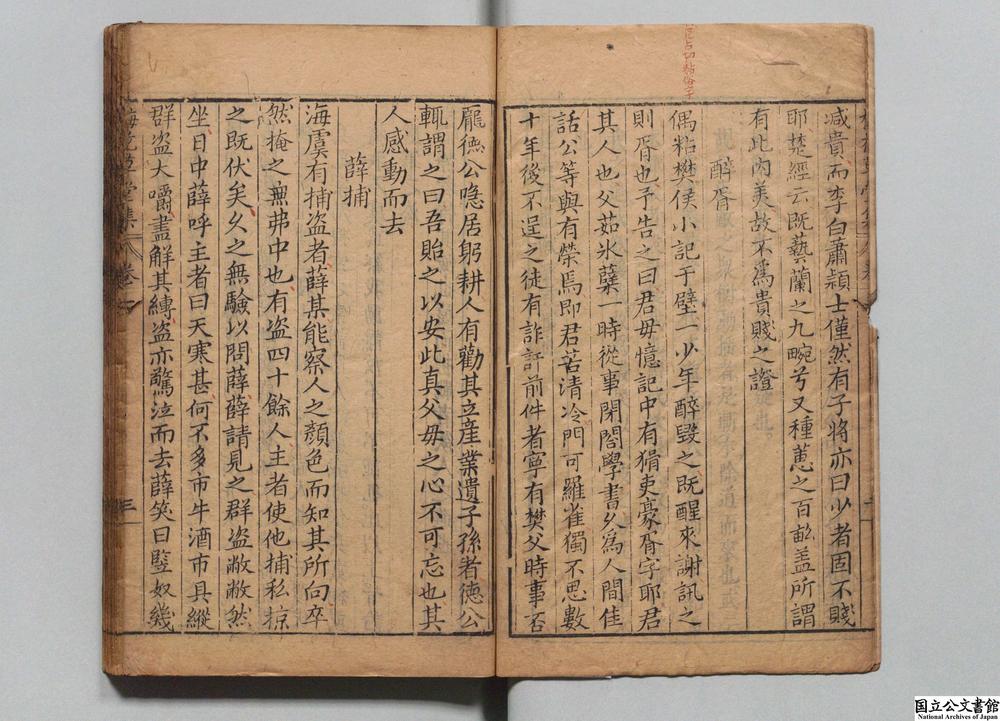 減貴而李白蕭頴士僅然有子將亦曰少者固不賤
耶楚經云既藝蘭之九畹兮又種蕙之百畝盖所謂
有此内美故不為貴賤之證
醉胥
偶粘樊侯小記于壁一少年醉毀之既醒來謝訊之
則胥也予告之曰君毋憶記中有猾吏豪胥字耶君
其人也父茹氷蘖一時從事閑閣學書乆為人間佳
話公等與有榮焉即君苦清冷門可羅雀獨不思數
十年後不逞之徒有詐訂前件者寧有樊父時事否
龎德公隐居躬耕人有勸其立産業遺子孫者德公
輒謂之曰吾貽之以安此真父毋之心不可忘也其
人感動而去
薛捕
海虞有捕盗者薛某能察人之顔色而知其所向卒
然掩之無弗中也有盗四十餘人主者使他捕私掠
之既伏矣乆之無驗以問薛薛請見之群盗敝敝然
坐日中薛呼主者曰天寒甚何不多市牛酒市具縱
群盗大嚼盡解其縛盗亦驚泣而去薛笑曰豎奴幾
草堂集
卷
三
国立公文書館
National Archives of Japan